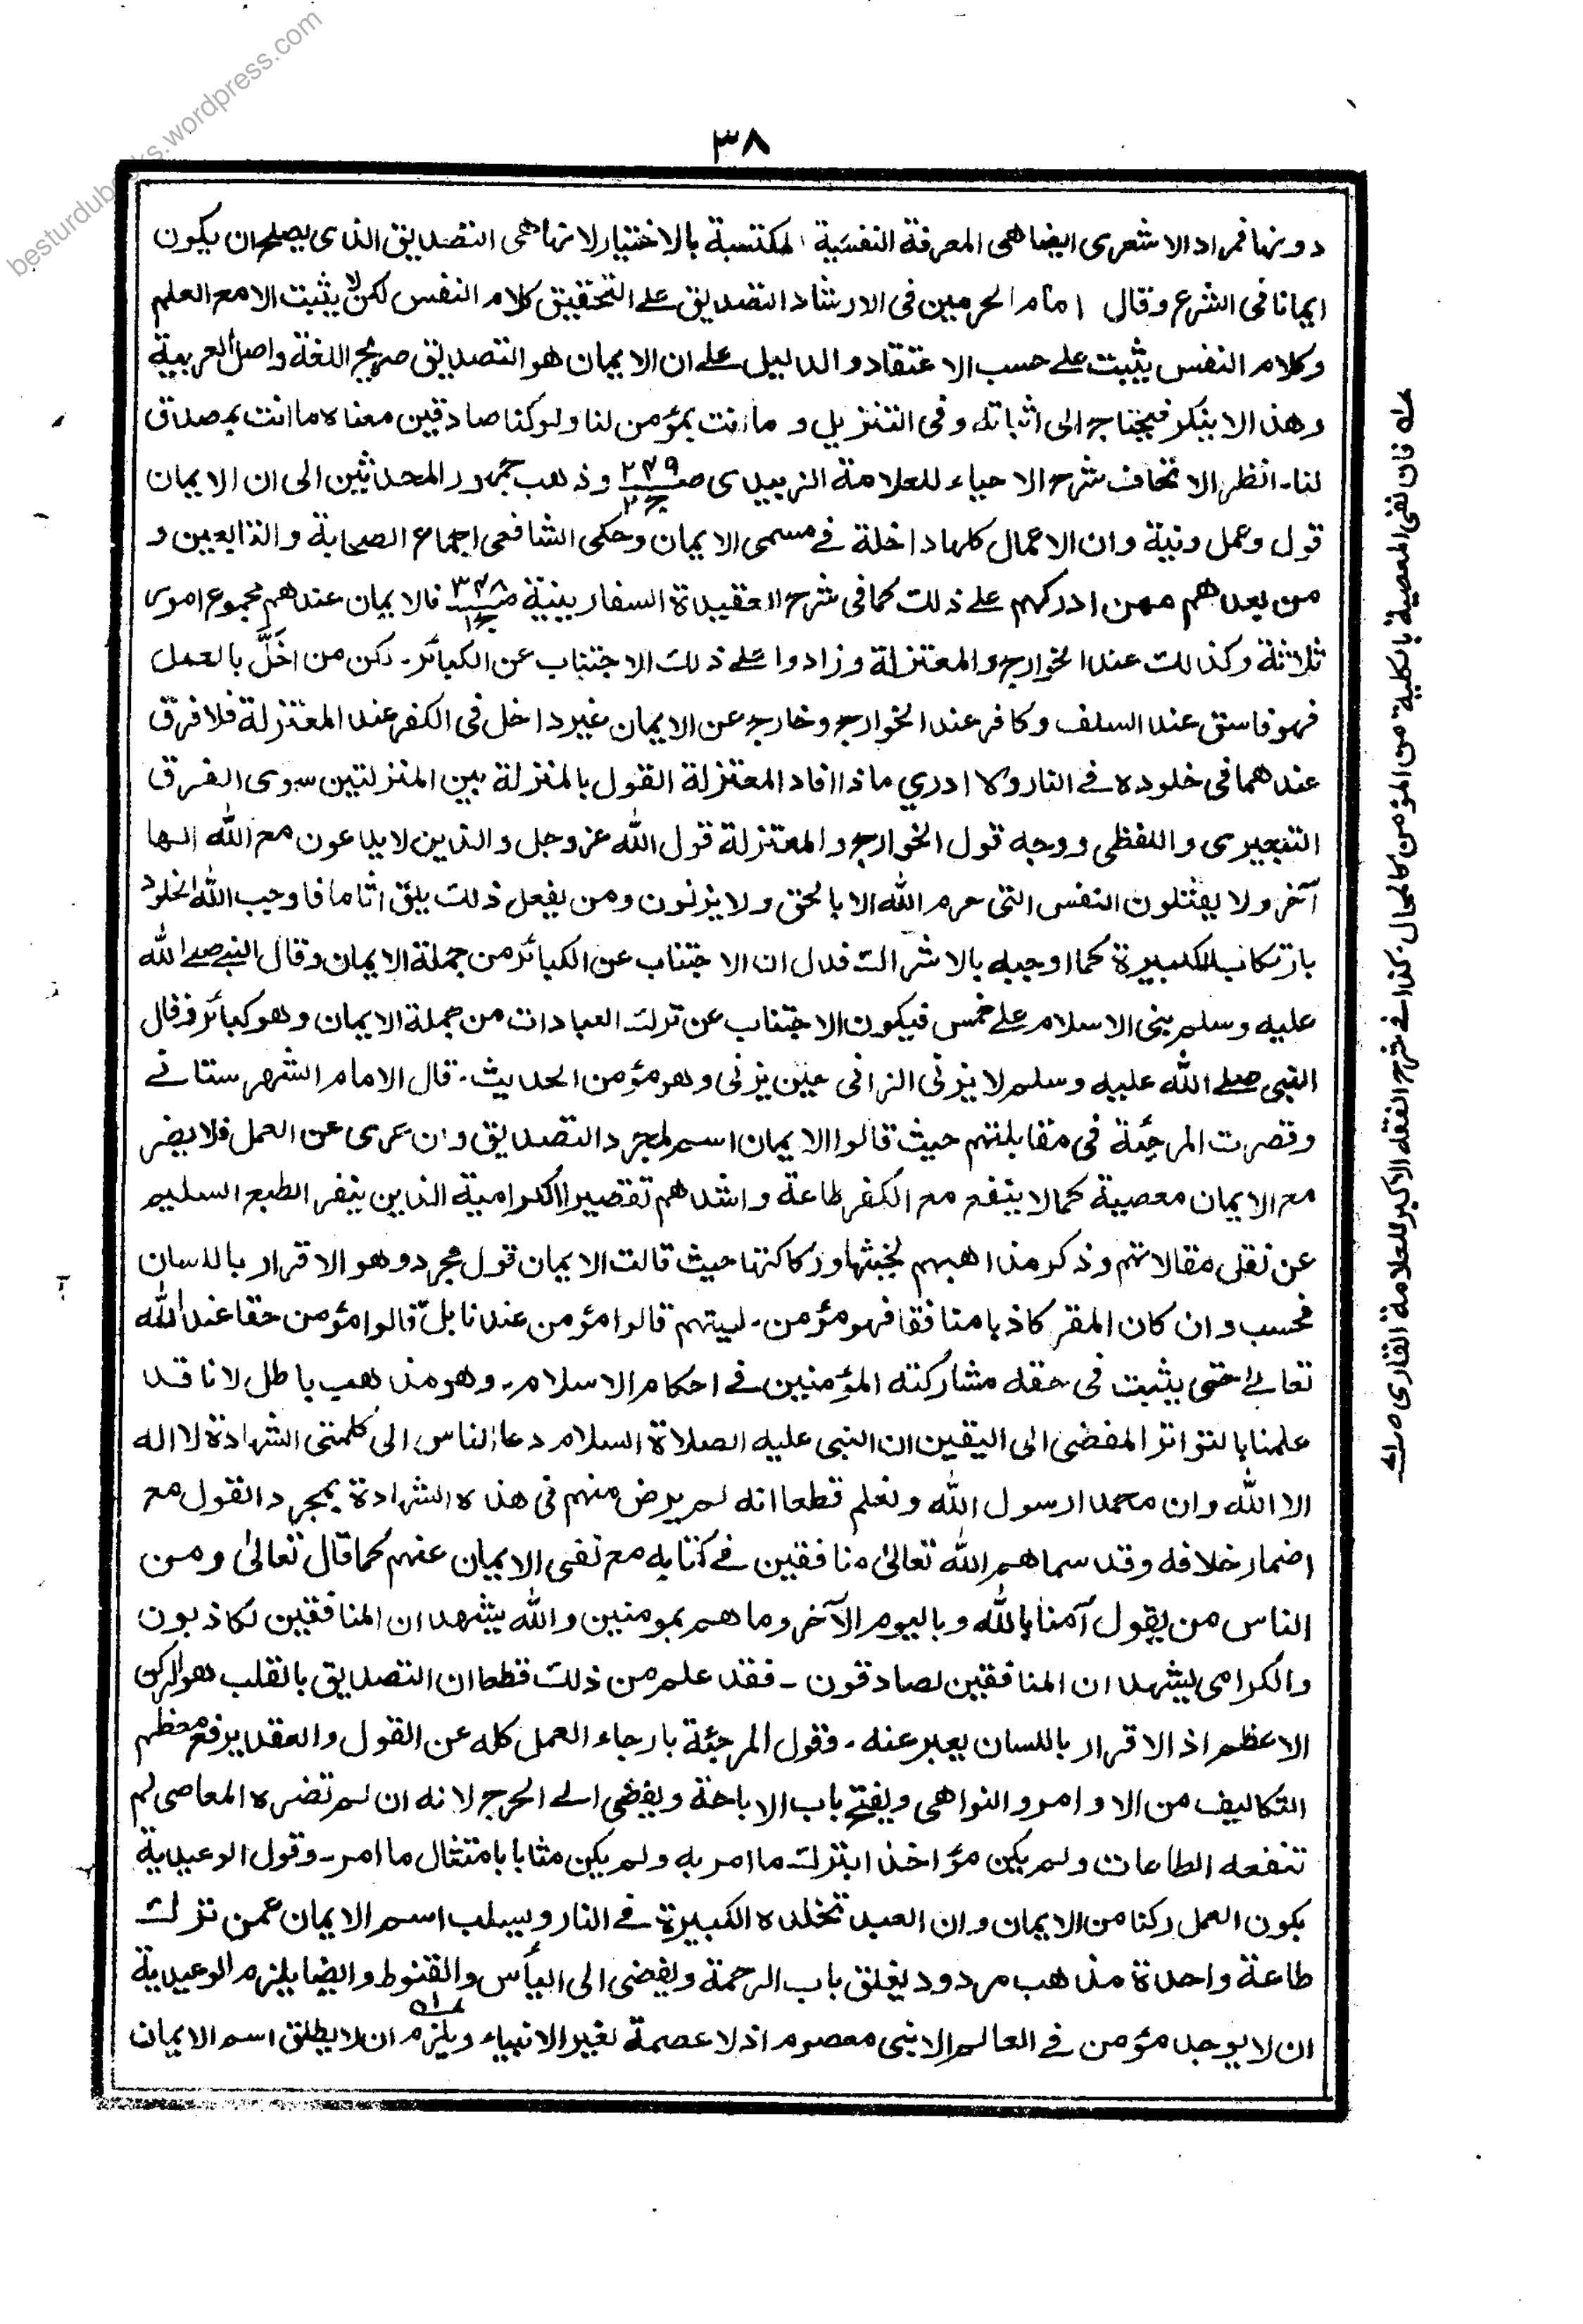 besturdubooks.wordpress.com
٣٨
دونها فمراد الاشعرى ايضا هى المعرفة النفسية المكتسبة بالاختيار لانها هى التصديق الذى يصلح ان يكون
ايمانا فى الشرع وقال امام الحرمين فى الارشاد التصديق على التحقيق كلام النفس لكن لا يثبت الا مع العلم
وكلام النفس يثبت على حسب الاعتقاد والدليل على ان الايمان هو التصديق صريح اللغة واصل العربية
وهذا لا ينكر فيحتاج الى اثباته وفى التنزيل وما انت بمؤمن لنا ولو كنا صادقين معناه ما انت بمصدق
لنا۔ انظر الاتحاف شرح الاحياء للعلامة الزبيدى ص٢٤٩ ج٢ وذهب جمهور المحدثين الى ان الايمان
قول وعمل ونية وان الاعمال كلها داخلة فى مسمى الايمان وحكى الشافعى اجماع الصحابة والتابعين و
من بعدهم ممن ادركهم على ذلك كما فى شرح العقيدة السفارينية ص٣٤٨ ج١ فالايمان عندهم مجموع امور
ثلاثة وكذلك عند الخوارج والمعتزلة وزادوا على ذلك الاجتناب عن الكبائر۔ لكن من اخَلَّ بالعمل
فهو فاسق عند السلف وكافر عند الخوارج وخارج عن الايمان غير داخل فى الكفر عند المعتزلة فلا فرق
عندهما فى خلوده فى النار ولا ادري ماذا افاد المعتزلة القول بالمنزلة بين المنزلتين سوى الفرق
التعبيرى واللفظى ووجه قول الخوارج والمعتزلة قول الله عز وجل والذين لا يدعون مع الله الها
آخر ولا يقتلون النفس التى حرم الله الا بالحق ولا يزنون ومن يفعل ذلك يلق اثاما فاوجب الله الخلود
بارتكاب الكبيرة كما اوجبه بالاشراك فدل ان الاجتناب عن الكبائر من جملة الايمان وقال النبى صلى الله
عليه وسلم بنى الاسلام على خمس فيكون الاجتناب عن ترك العبادات من جملة الايمان وهو كبائر وقال
النبى صلى الله عليه وسلم لا يزنى الزانى حين يزنى وهو مؤمن الحديث۔ قال الامام الشهرستانى
وقصرت المرجئة فى مقابلتهم حيث قالوا الايمان اسم لمجرد التصديق وان عرى عن العمل فلا يضر
مع الايمان معصية كما لا ينفع مع الكفر طاعة واشدهم تقصيرا الكرامية الذين ينفر الطبع السليم
عن نقل مقالاتهم وذكر مذاهبهم لخبثها وركاكتها حيث قالت الايمان قول مجرد وهو الاقرار باللسان
فحسب وان كان المقر كاذبا منافقا فهو مؤمن۔ ليتهم قالوا مؤمن عندنا بل قالوا مؤمن حقا عند الله
تعالى حتى يثبت فى حقه مشاركته المؤمنين فى احكام الاسلام۔ وهو مذهب باطل لانا قد
علمنا بالتواتر المفضى الى اليقين ان النبى عليه الصلاة السلام دعا الناس الى كلمتى الشهادة لا اله
الا الله وان محمدا رسول الله ونعلم قطعا انه لم يرض منهم فى هذه الشهادة بمجرد القول مع
اضمار خلافه وقد سماهم الله تعالىٰ منافقين فى كتابه مع نفى الايمان عنهم كما قال تعالىٰ ومن
الناس من يقول آمنا بالله وباليوم الآخر وما هم بمومنين والله يشهد ان المنافقين لكاذبون
والكرامى يشهد ان المنافقين لصادقون ۔ فقد علم من ذلك قطعا ان التصديق بالقلب هو الركن
الاعظم اذ الاقرار باللسان يعبر عنه۔ فقول المرجئة بارجاء العمل كله عن القول والعقد يرفع معظم
التكاليف من الاوامر والنواهى ويفتح باب الاباحة ويفضى الى الحرج لانه ان لم تضره المعاصى لم
تنفعه الطاعات ولم يكن مؤاخذا بترك ما امر به ولم يكن مثابا بامتثال ما امر۔ وقول الوعيدية
بكون العمل ركنا من الايمان وان العبد تخلده الكبيرة فى النار ويسلب اسم الايمان عمن ترك
طاعة واحدة مذهب مردود يغلق باب الرحمة ويفضى الى اليأس والقنوط وايضا يلزم الوعيدية
ان لا يوجد مؤمن فى العالم الا نبى معصوم اذ لا عصمة لغير الانبياء ويلزم ان لا يطلق اسم الايمان
فان نفى المعصية بالكلية من المؤمن كالمحال۔ كذا فى شرح الفقه الاكبر للعلامة القارى